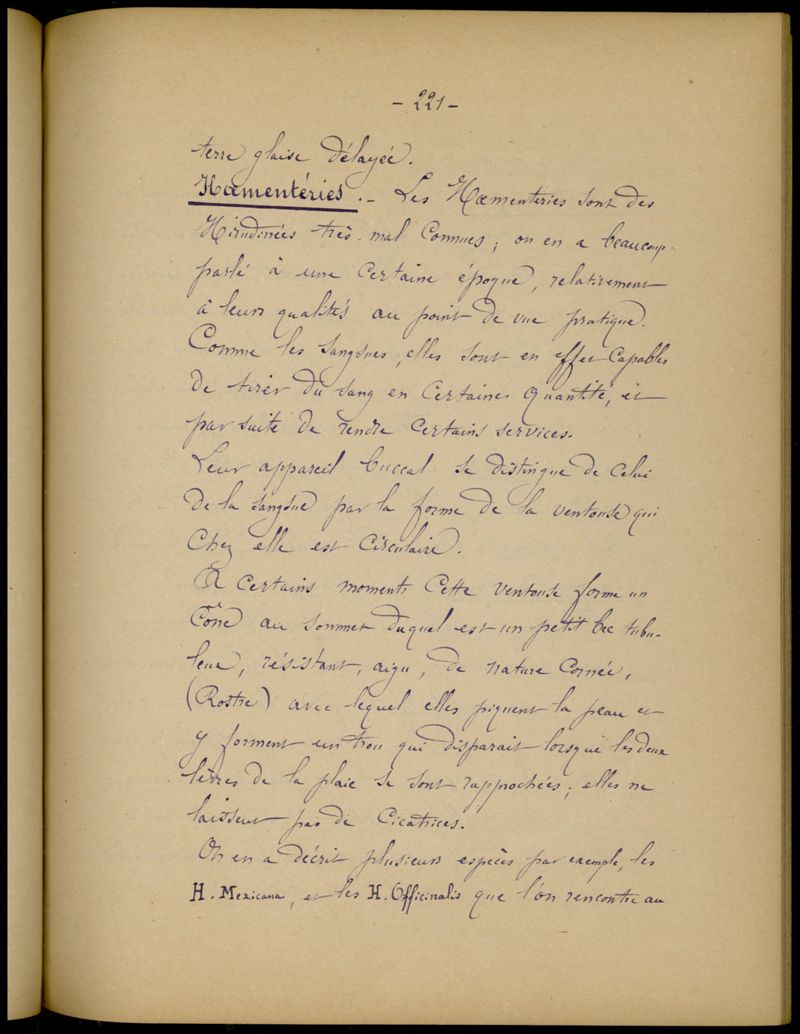 - 221 -
terre glaise délayée.
Hœmentéries. - Les Hœmenteries sont des
Hirudinées très mal connues ; on en a beaucoup
parlé à une certaine époque, relativement
à leurs qualités au point de vue pratique.
Comme les sangsues, elles sont en effet capables
de tirer du sang en certaines quantité, et
par suite de rendre certains services.
Leur appareil buccal se distingue de celui
de la sangsue par la forme de la ventouse qui
chez elle est circulaire.
A certains moments cette ventouse forme un
cône au sommet duquel est un petit bec tubu-
leux, résistant, aigu, de nature cornée,
(Rostre) avec lequel elles piquent la peau et
y forment un trou qui disparait lorsque les deux
lèvres de la plaie se sont rapprochées ; elles ne
laissent pas de cicatrices.
On en a décrit plusieurs espèces par exemple, les
H. Mexicana, et les H. Officinalis que l'on rencontre au